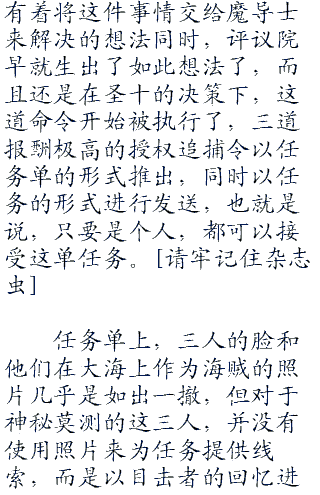 有着将这件事情交给魔导士
来解决的想法同时，评议院
早就生出了如此想法了，而
且还是在圣十的决策下，这
道命令开始被执行了，三道
报酬极高的授权追捕令以任
务单的形式推出，同时以任
务的形式进行发送，也就是
说，只要是个人，都可以接
受这单任务。[请牢记住杂志
虫]
任务单上，三人的脸和
他们在大海上作为海贼的照
片几乎是如出一撤，但对于
神秘莫测的这三人，并没有
使用照片来为任务提供线
索，而是以目击者的回忆进